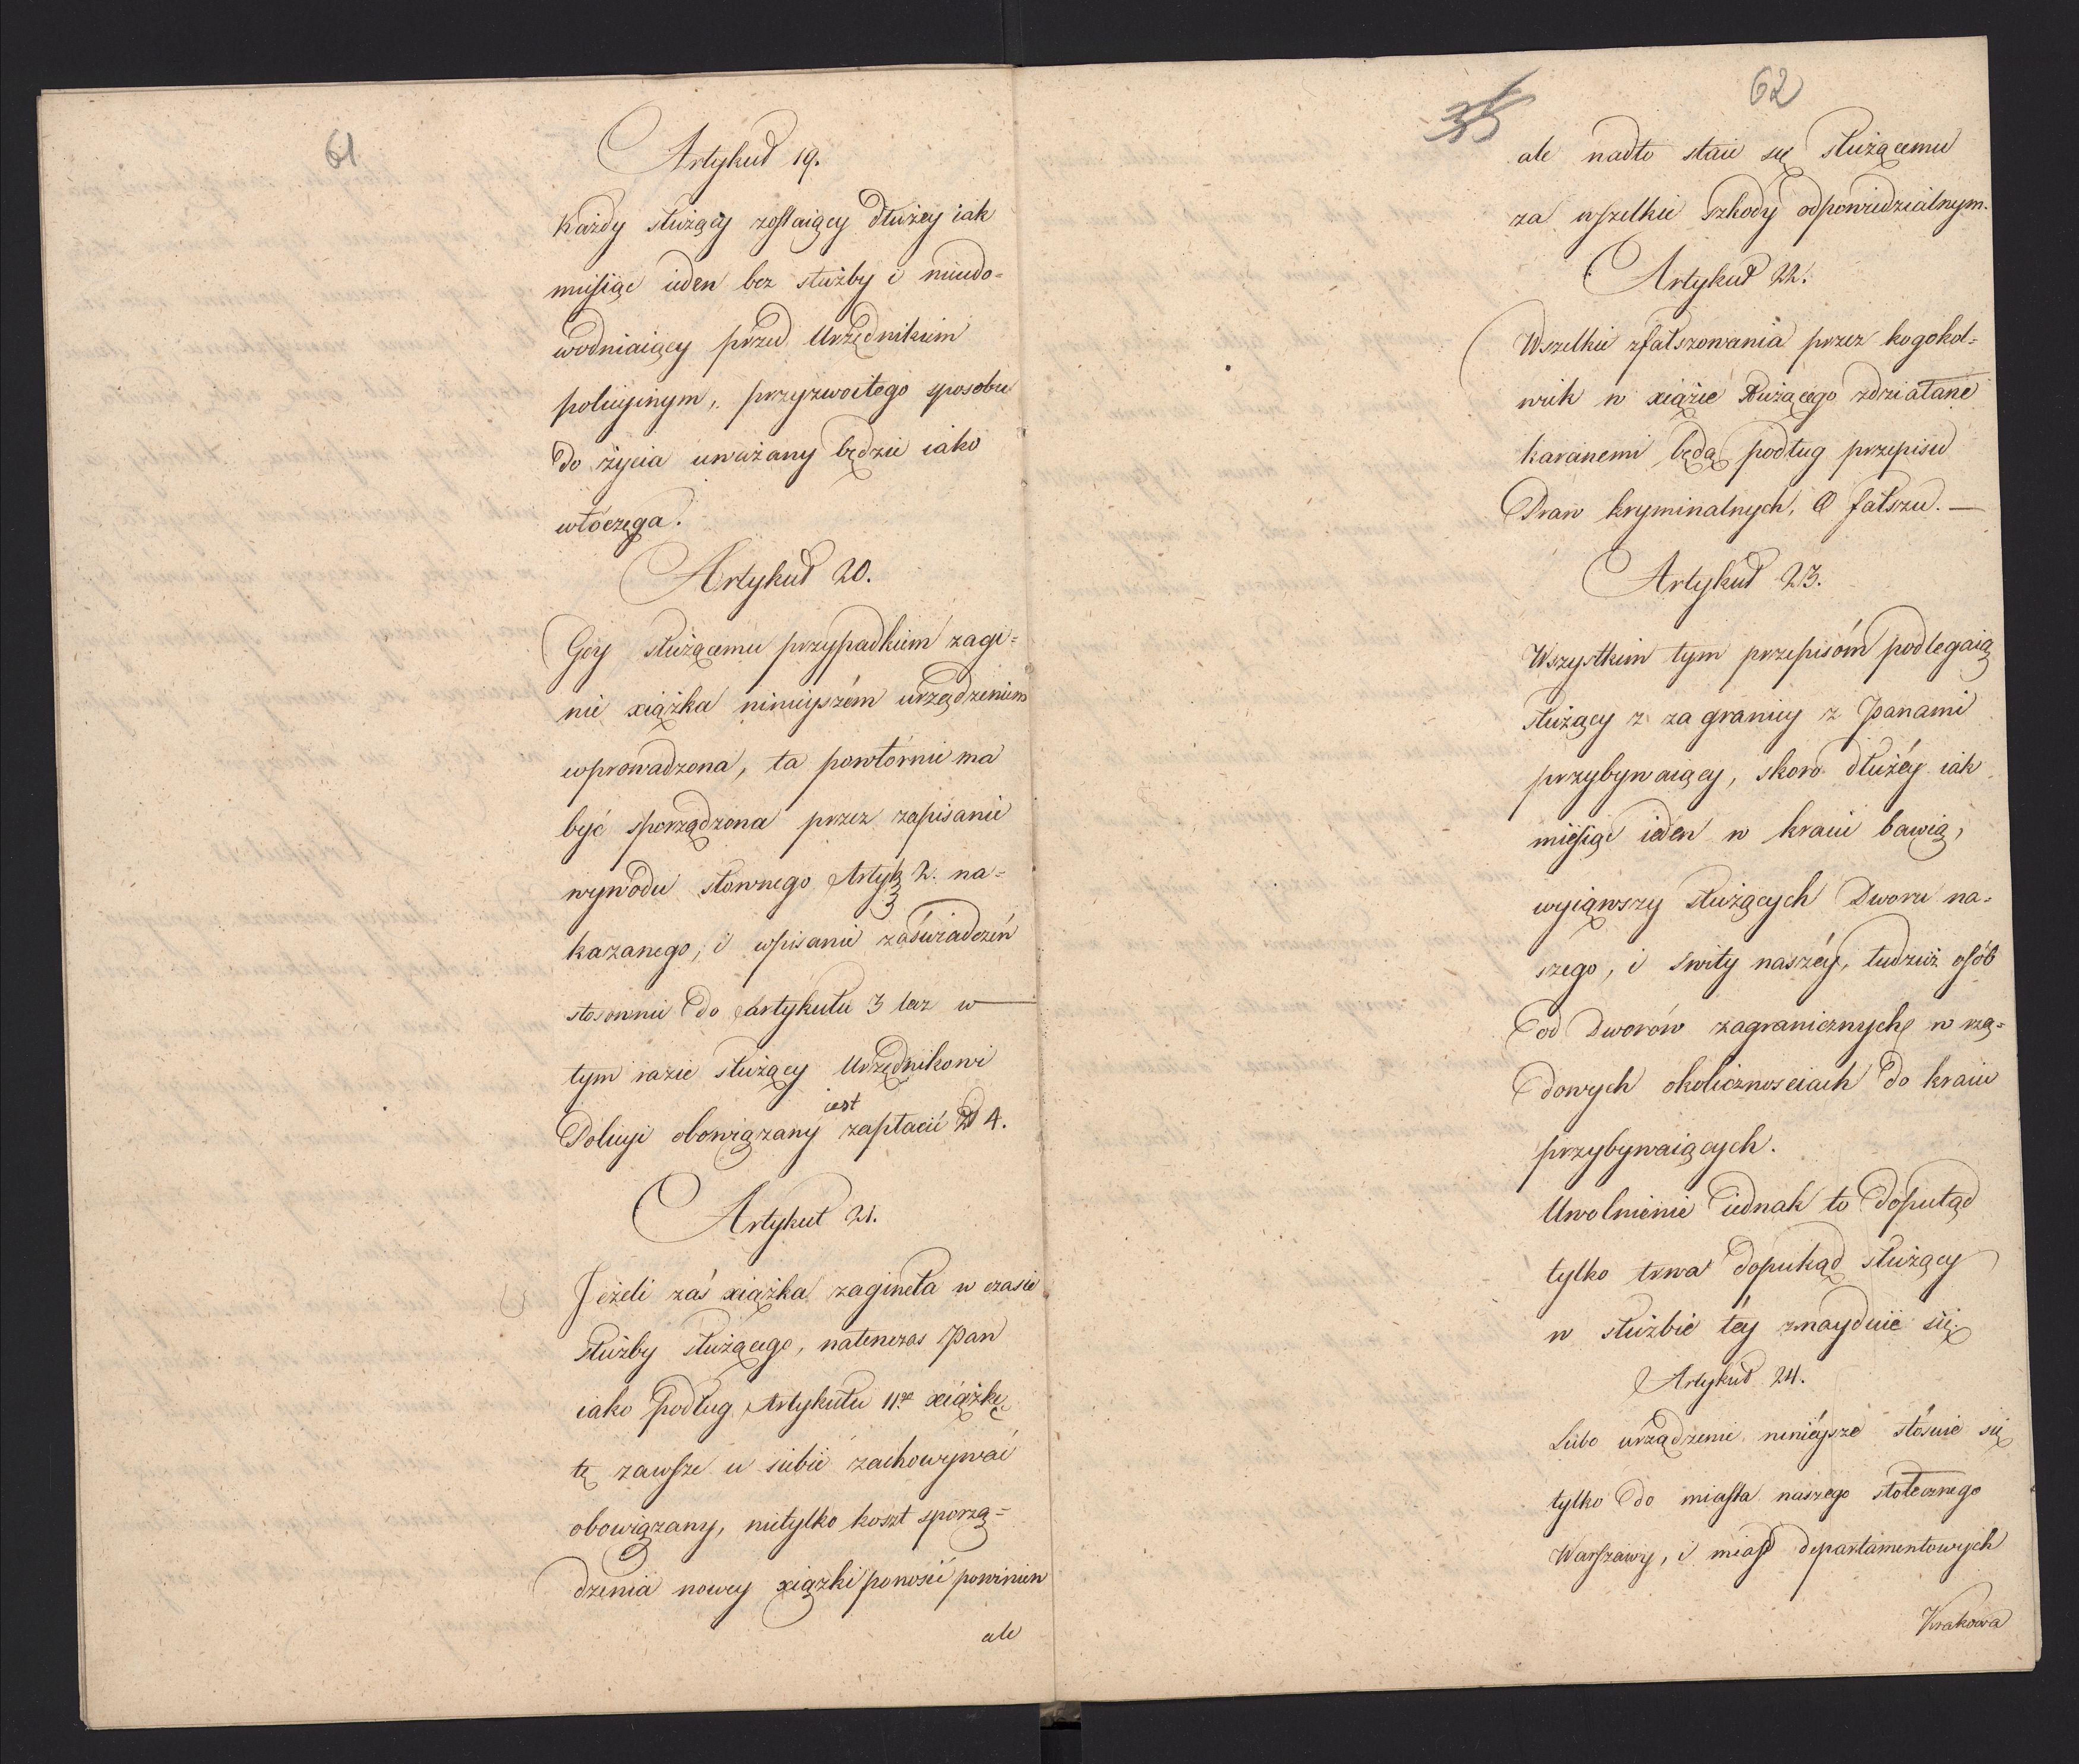 61
Artykuł 19.
Każdy służący zostaiący dłużey iak
miesiąc ieden bez służby i nieudo-
wodniaiący przed Urzędnikiem
policyinym, przyzwoitego sposobu
do życia uważany będzie iako
włóczęga.
Artykuł 20.
Gdy służącemu przypadkiem zagi-
nie xiążka ninieyszém urządzeniem
wprowadzona, ta powtórnie ma
być sporządzona przez zapisanie
wywodu słownego Artyk 2. na-
kazanego, i wpisanie zaświadczeń
stosownie do Artykułu 3 lecz w
tym razie służący Urzędnikowi
Policyi obowiązany iest zapłacić Zł 4.
Artykuł 21.
Jeżeli zaś xiążka zagineła w czasie
służby służącego, natenczas Pan
iako podług Artykułu 11go xiążkę
tę zawsze u siebie zachowywać
obowiązany, nietylko koszt sporzą-
dzenia nowey xiążki ponosić powinien
ale
35
62
ale nadto staie się służącemu
za wszelkie szkody odpowiedzialnym.
Artykuł 22.
Wszelkie zfałszowania przez kogokol-
wiek w xiążce służącego zdziałane
karanemi będą podług przepisu
Praw kryminalnych, O fałszu. —
Artykuł 23.
Wszystkim tym przepisóm podlegaią
służący z zagranicy z Panami
przybywaiący, skoro dłużéy iak
miesiąc ieden w kraiu bawią,
wyiąwszy służących Dworu na-
szego, i swity naszéy, tudzież osób
od Dworów zagranicznych w rzą-
dowych okolicznosciach do kraiu
przybywaiących.
Uwolnienie iednak to doputąd
tylko trwa dopukąd służący
w służbie téy znayduie się.
Artykuł 24.
Lubo urządzenie ninieysze stósuie się
tylko do miasta naszego stołecznego
Warszawy, i miast departamentowych
Krakowa